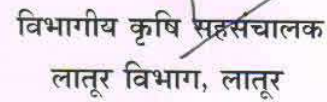 विभागीय कृषि सहसंचालक
लातूर विभाग, लातूर